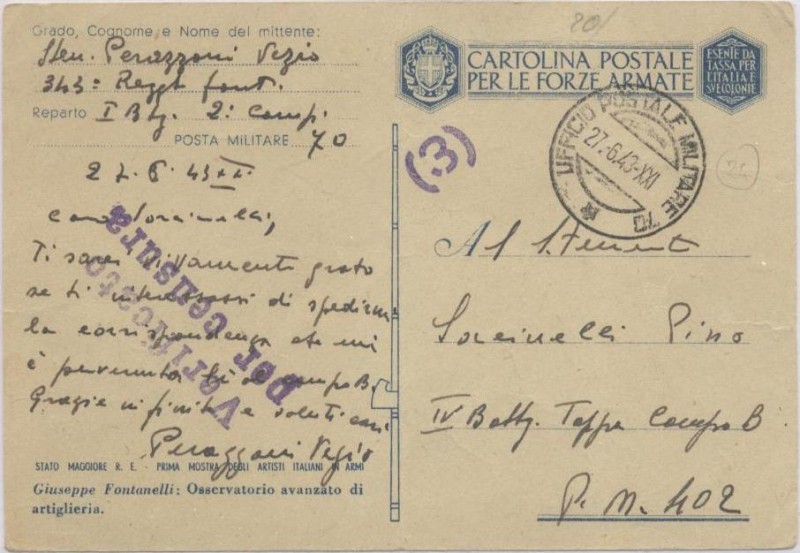 20/
Grado, Cognome e Nome del mittente:
Sten. Perazzoni Vezio
343° Reggt fant.
Reparto I Btg. 2ª Comp.
POSTA MILITARE 70
27.6.43 XXI
Caro Sorcinelli,
Ti sarei vivamente grato
se ti interessassi di spedirmi
la corrispondenza che mi
è pervenuta al campo B.
Grazie infinite e saluti cari
Perazzoni Vezio
Verificato
per censura
STATO MAGGIORE R. E. - PRIMA MOSTRA DEGLI ARTISTI ITALIANI IN ARMI
Giuseppe Fontanelli: Osservatorio avanzato di
artiglieria.
CARTOLINA POSTALE
PER LE FORZE ARMATE
ESENTE DA
TASSA PER
L'ITALIA E
SVE COLONIE
(3)
UFFICIO POSTALE MILITARE 70
27.6.43-XXI
Al S.Tenente
Sorcinelli Pino
IV Battg. Tappa Campo B.
P. M. 402